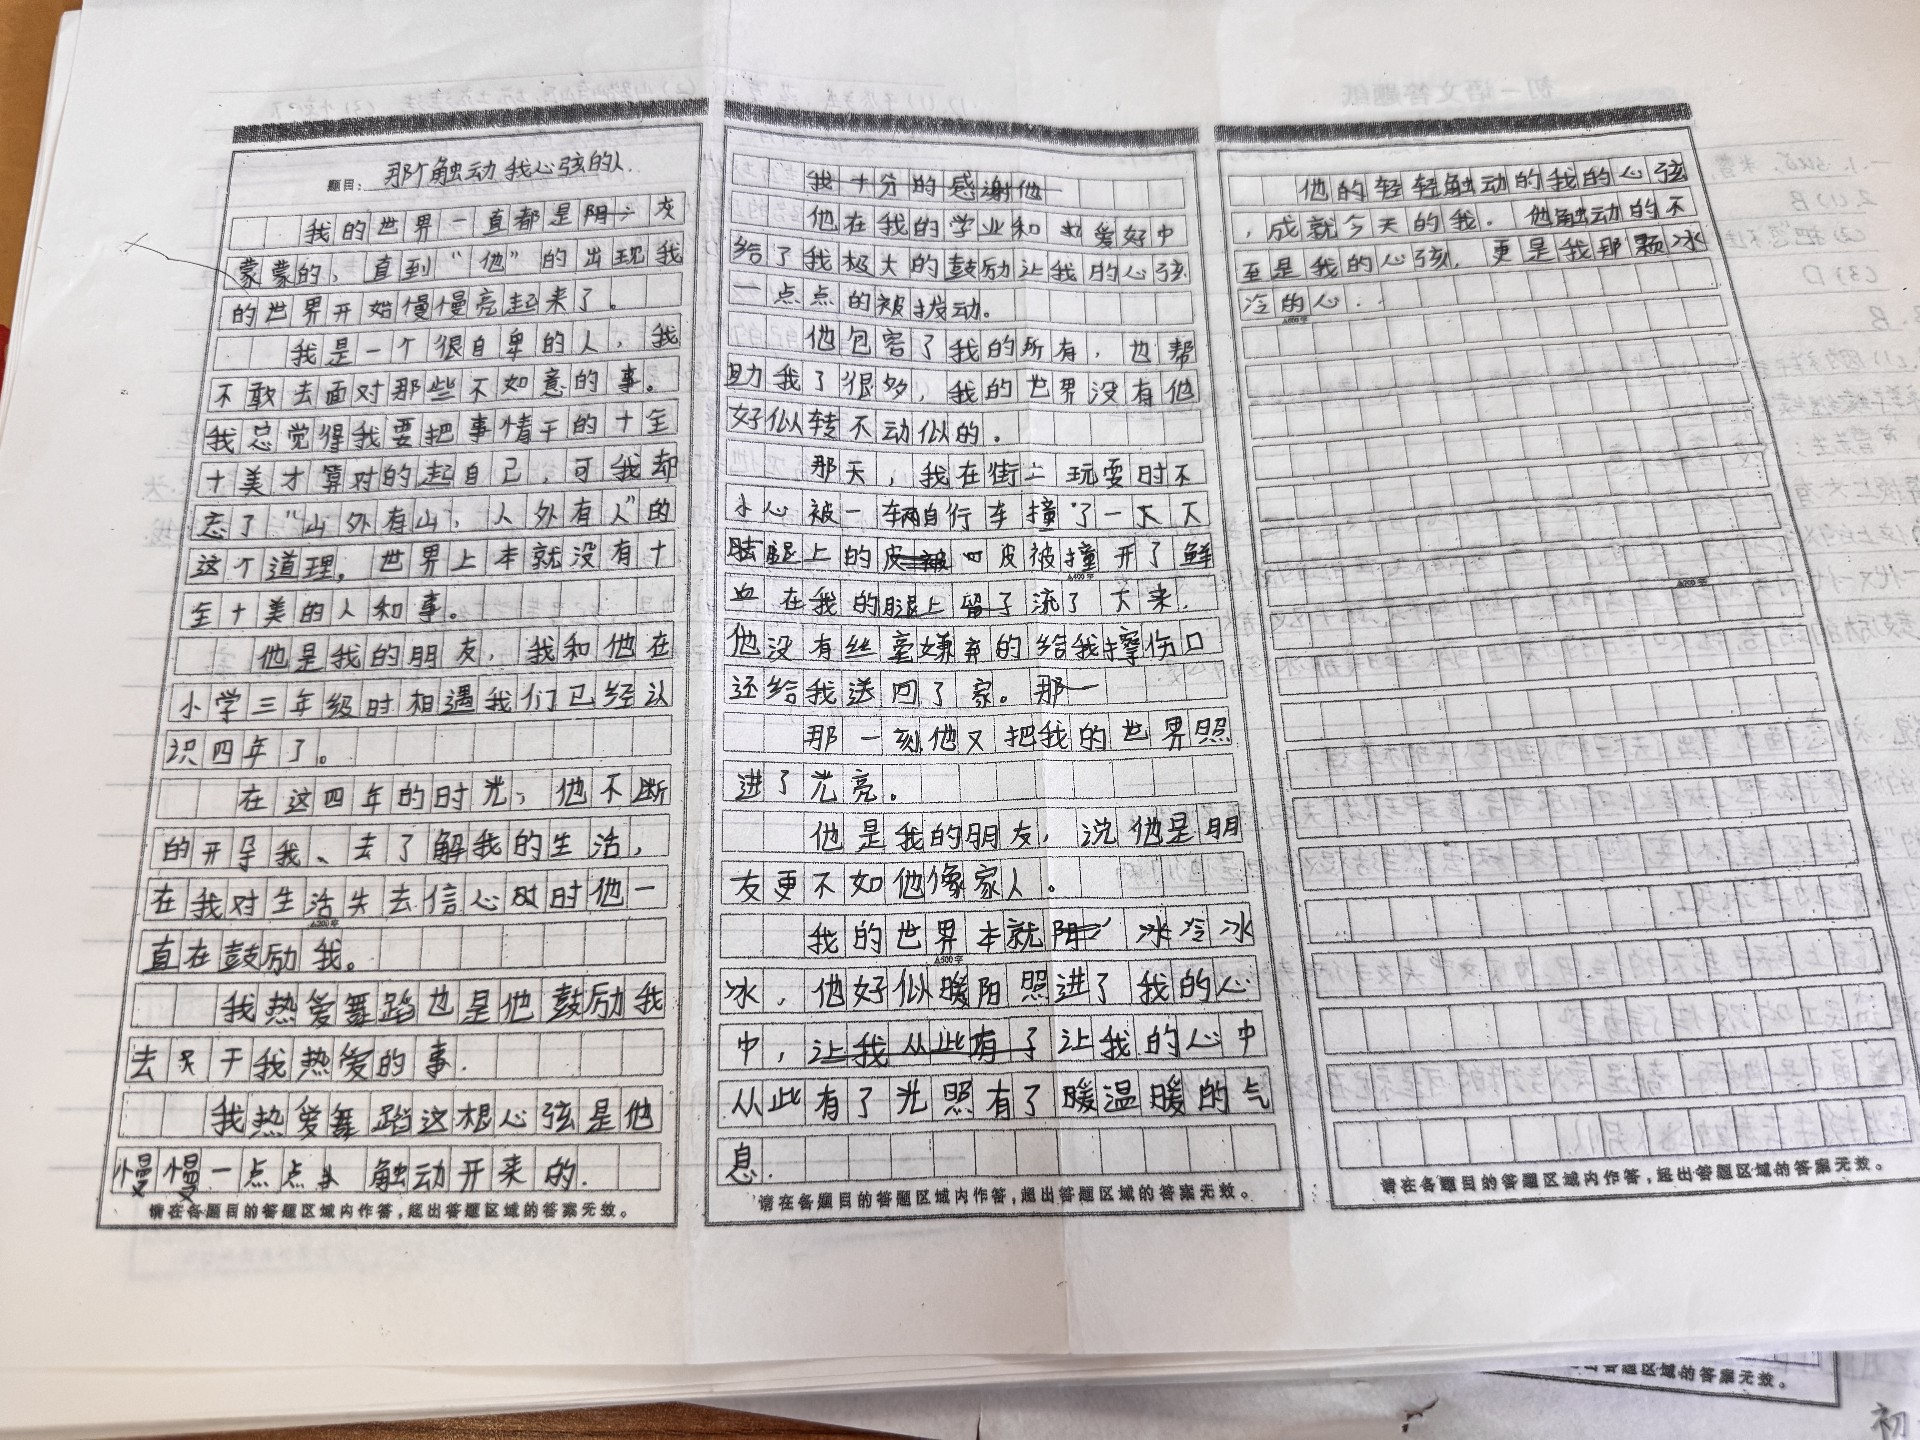 题目: 那个触动我心弦的人
我的世界一直都是阴沉灰
蒙蒙的、直到“他”的出现我
的世界开始慢慢亮起来了。
我是一个很自卑的人，我
不敢去面对那些不如意的事。
我总觉得我要把事情干的十全
十美才算对的起自己，可我却
忘了“山外有山，人外有人”的
这个道理，世界上本就没有十
全十美的人和事。
他是我的朋友，我和他在
小学三年级时相遇我们已经认
识四年了。
在这四年的时光，他不断
的开导我、去了解我的生活，
在我对生活失去信心时他一
▲200字
直在鼓励我。
我热爱舞蹈也是他鼓励我
去干我热爱的事.
我热爱舞蹈这根心弦是他
慢慢一点点触动开来的.
请在各题目的答题区域内作答,超出答题区域的答案无效。
我十分的感谢他
他在我的学业和爱好中
给了我极大的鼓励让我的心弦
一点点的被拨动。
他包容了我的所有，也帮
助我了很多，我的世界没有他
好似转不动似的。
那天，我在街上玩耍时不
小心被一辆自行车撞了一下
腿上的皮被撞开了鲜
▲400字
血在我的腿上留了流了下来.
他没有丝毫嫌弃的给我擦伤口
还给我送回了家。那
那一刻他又把我的世界照
进了光亮。
他是我的朋友，说他是朋
友更不如他像家人。
我的世界本就冰冷冰
▲500字
冰，他好似暖阳照进了我的心
中，让我从此有了让我的心中
从此有了光照有了暖温暖的气
息.
请在各题目的答题区域内作答,超出答题区域的答案无效。
他的轻轻触动的我的心弦
，成就今天的我。他触动的不
至是我的心弦，更是我那颗冰
冷的心.
▲600字
▲700字
请在各题目的答题区域内作答,超出答题区域的答案无效。
答题区域的答案无效。
初